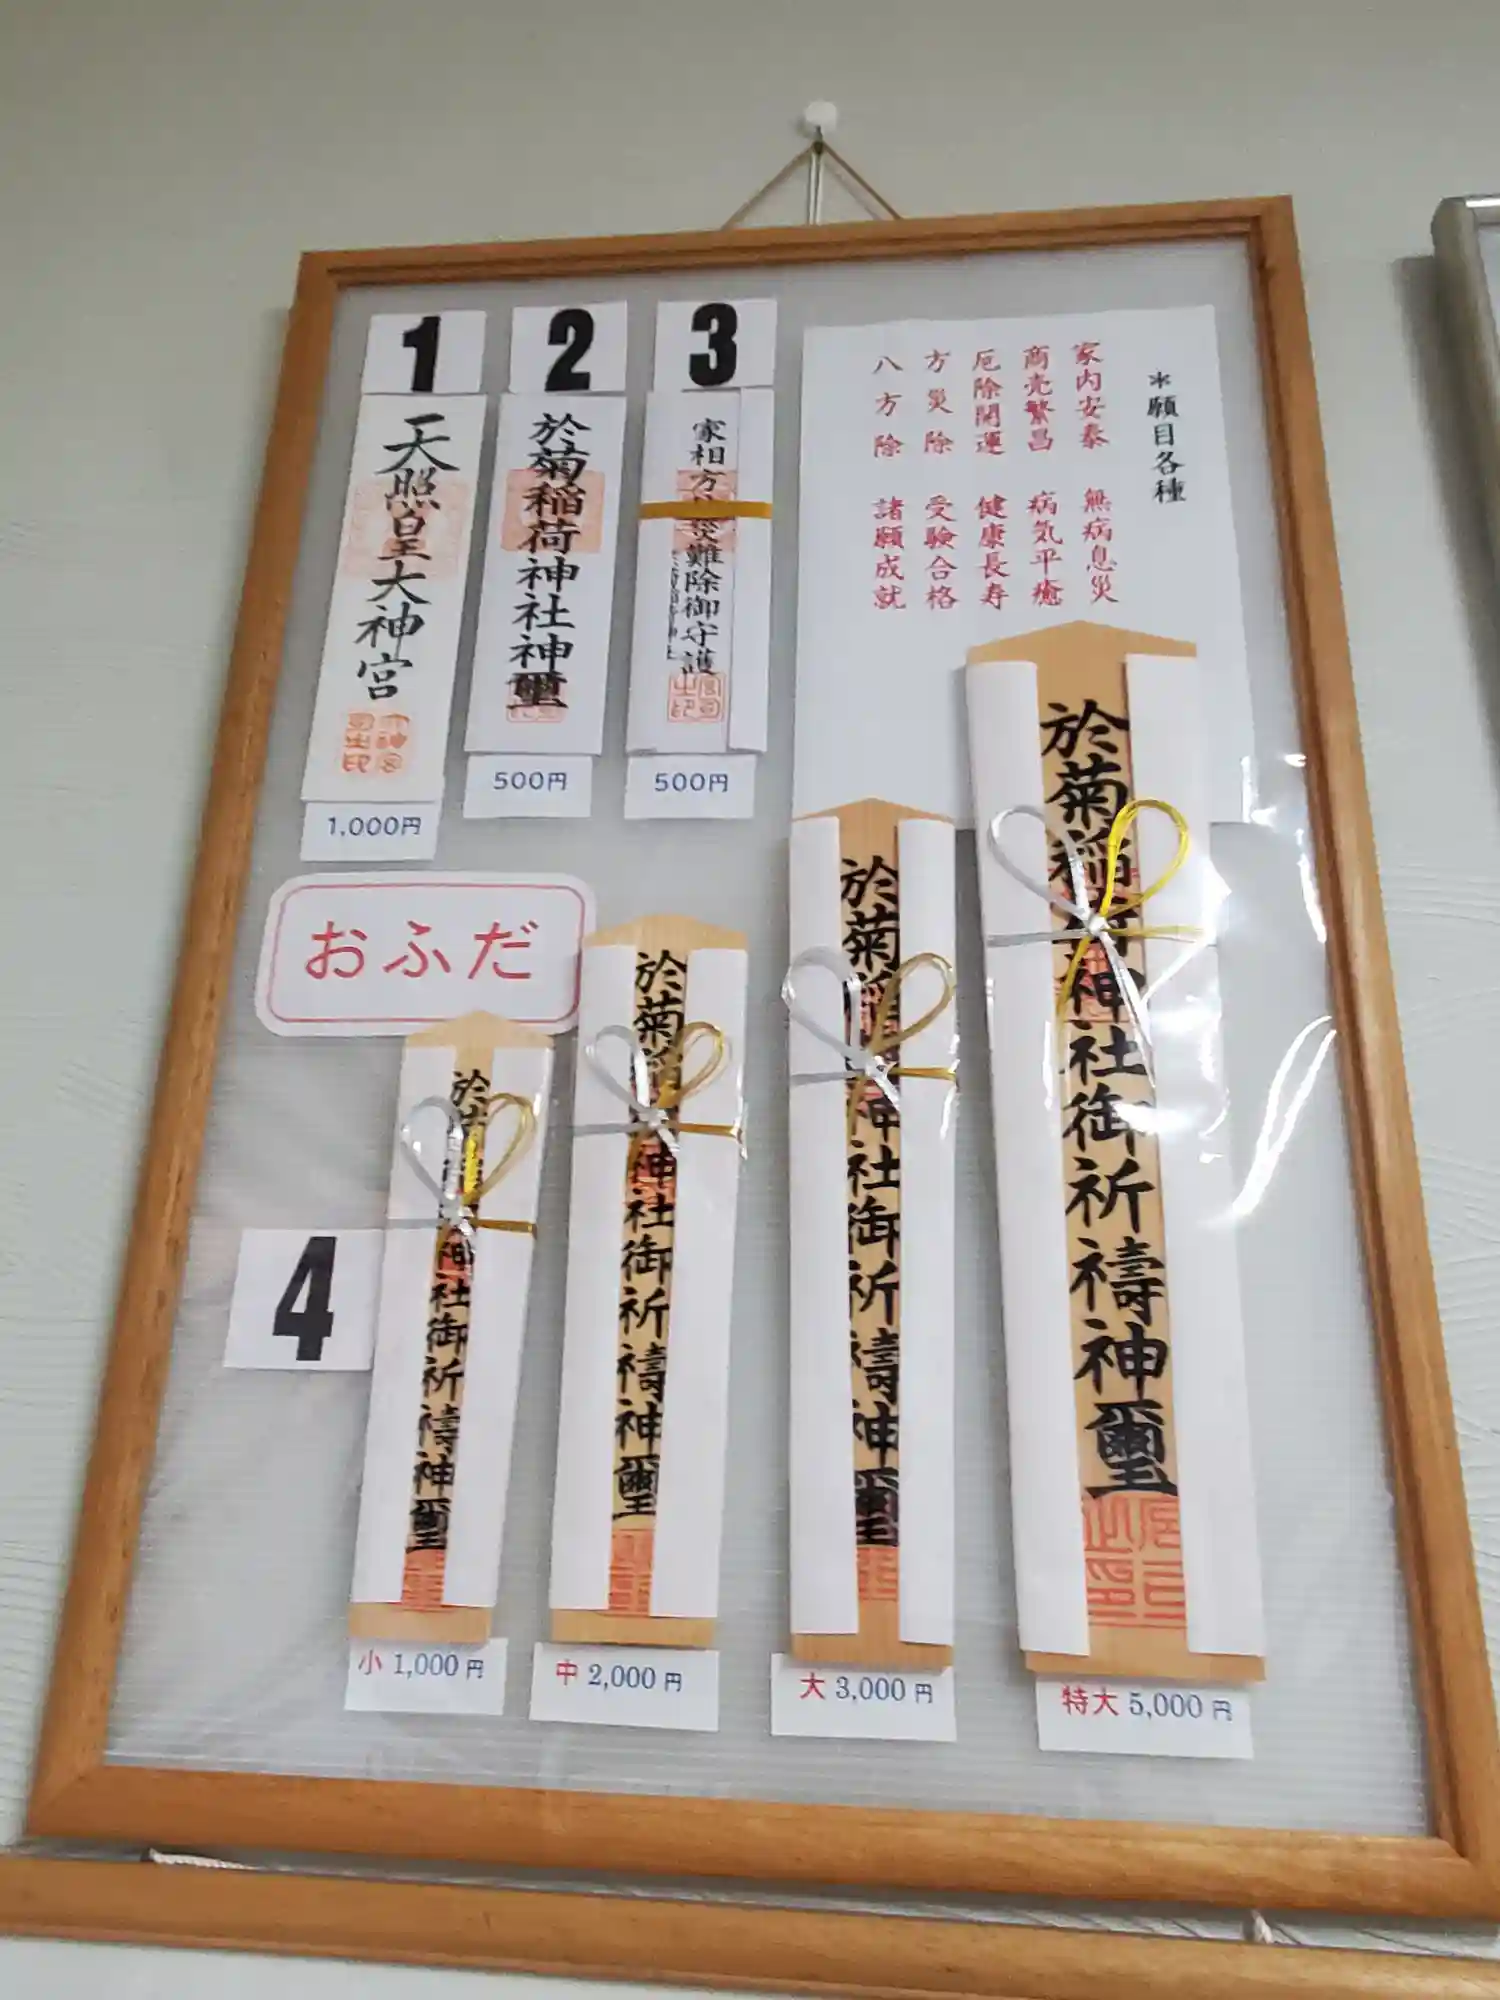 1
天照皇大神宮
1,000円
2
於菊稲荷神社神璽
500円
3
家相方災難除御守護
500円
*願目各種
家内安泰 無病息災
商売繁昌 病気平癒
厄除開運 健康長寿
方災除 受験合格
八方除 諸願成就
おふだ
4
於神社御祈禱神璽
小 1,000円
於菊稲神社御祈禱神璽
中 2,000円
於菊稲神社御祈禱神璽
大 3,000円
於菊稲荷神社御祈禱神璽
特大 5,000円